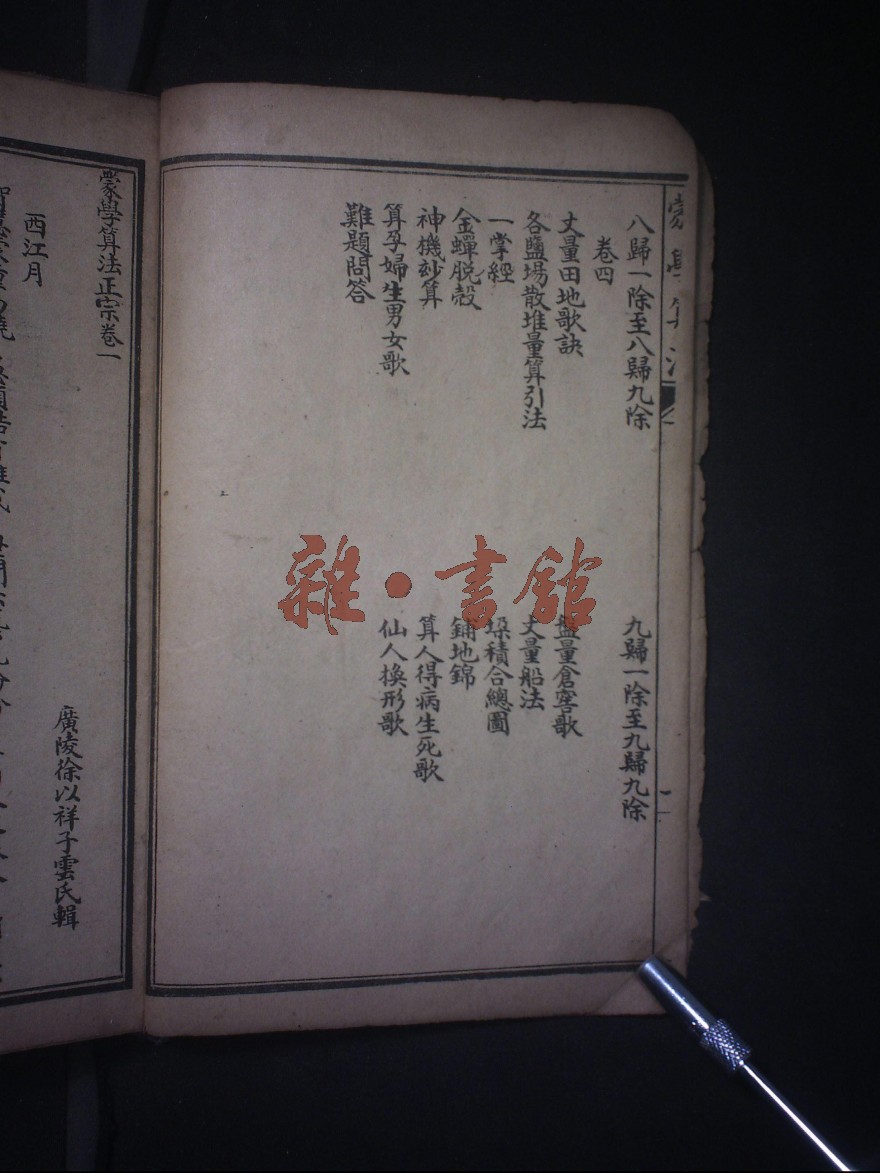 蒙學算法
八歸一除至八歸九除
九歸一除至九歸九除
卷四
丈量田地歌訣
盤量倉窖歌
各鹽場散堆量算引法
丈量船法
一掌經
垛積合總圖
金蟬脫殼
鋪地錦
神機玅算
算人得病生死歌
算孕婦生男女歌
仙人換形歌
難題問答
雜·書館
蒙學算法正宗卷一
廣陵徐以祥子雲氏輯
西江月